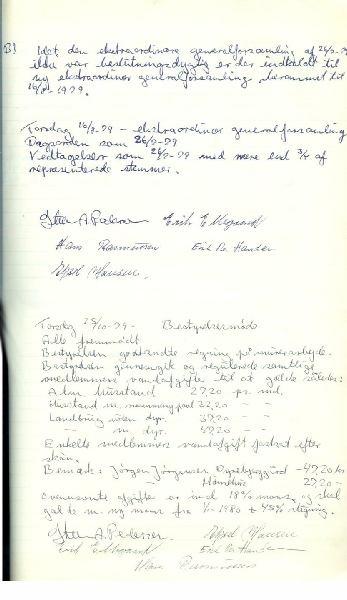 B) Idet den ekstraordinære generalforsamling af 26/7-79
ikke var beslutningsdygtig er der indkaldt til
ny ekstraordinær generalforsamling, berammet til
16/8-1979.
Torsdag 16/8-79 - ekstraordinær generalforsamling
Dagsorden som 26/7-79
Vedtagelser som 26/7-79 med mere end 3/4 af
repræsenterede stemmer.
A. Pedersen Erik
Hans Rasmussen Erik M. Hansen
Hansen
Torsdag 25/10-79. Bestyrelsesmøde
Alle fremmødt
Bestyrelsen godkendte regning på murerarbejde.
Bestyrelsen gennemgik og regulerede samtlige
medlemmers vandafgifter til at gælde således:
Alm. husstand 27,20 pr. md.
Husstand m. 32,20 - -
Landbrug uden dyr. 37,20 - -
-"- m. dyr. 47,20 - -
Enkelte medlemmer vandafgift fastsat efter
skøn.
Bemærk: Jørgen Jørgensen - 47,20 kr
27,20 -
afgifter er incl 18% moms, og skal
gælde m. ny moms fra 1/1-1980
A. Pedersen Hansen
Erik Erik M. Hansen
Hans Rasmussen